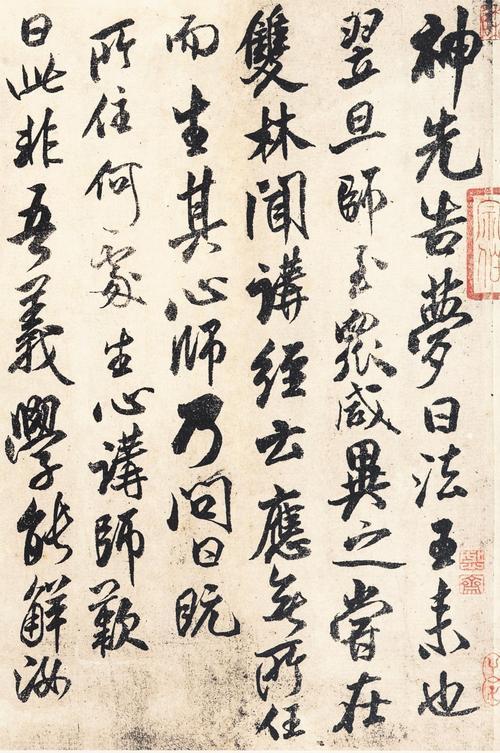 神先告夢曰法王来也
翌旦師至眾咸異之嘗在
雙林聞講經云應無所住
而生其心師乃問曰既
所住何處生心講師歎
曰此非吾義學能解汝